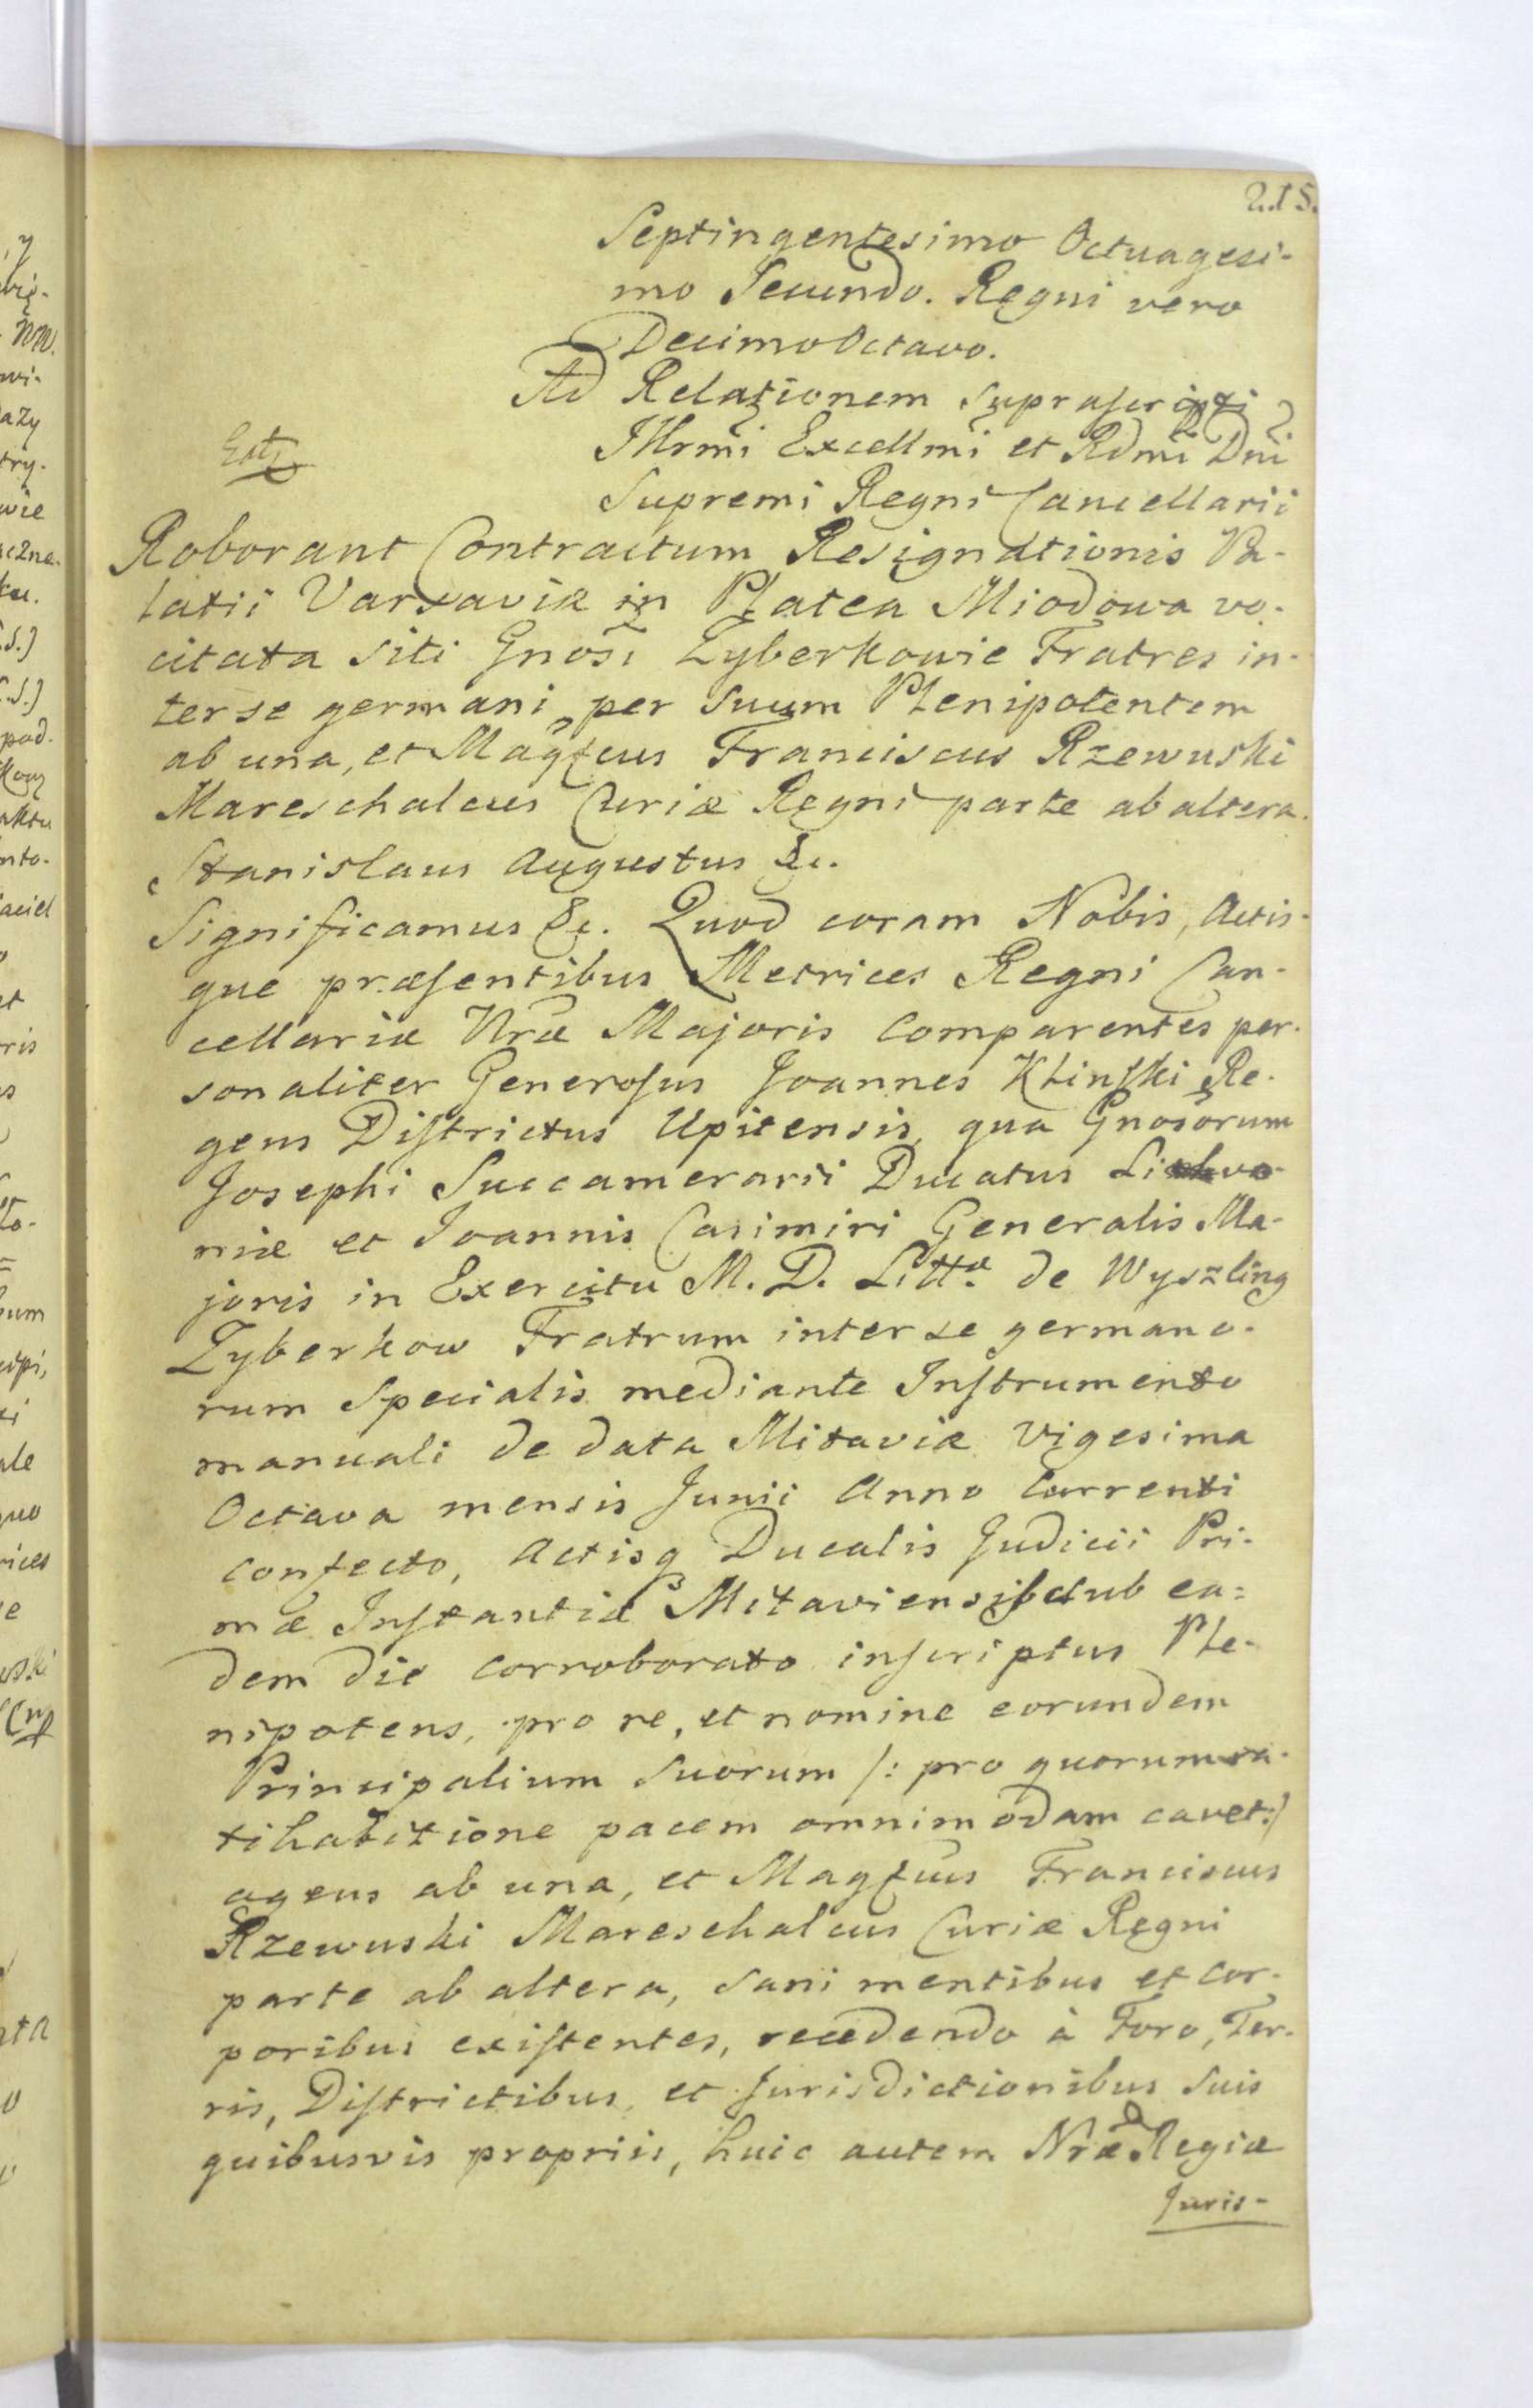 215.
Septingentesimo Octuagesi-
mo Secundo. Regni vero
Decimo Octavo.
Ad Relationem supraſcripti
Illrmi Excellmi et Rdmi Dni
Supremi Regni Cancellarii
Roborant Contractum Resignationis Pa-
latii Varsaviæ in Platea Miodowa vo-
citata siti Gnosi Zyberkowie Fratres in-
ter se germani, per suum Plenipotentem
ab una, et Magfcus Franciscus Rzewuski
Mareschalcus Curiæ Regni parte ab altera.
Stanislaus Augustus &c.
Significamus &c. Quod coram Nobis, Actis-
que præſentibus Metrices Regni Can-
cellariæ Nræ Majoris comparentes per-
sonaliter Generoſus Joannes Klinſki Re-
gens Diſtrictus Upitensis, qua Gnosorum
Josephi Succamerarii Ducatus Livo-
niæ et Joannis Casimiri Generalis Ma-
joris in Exercitu M. D. Litt. de Wyszling
Zyberkow Fratrum inter se germano-
rum specialis mediante Inſtrumento
manuali de data Mitaviæ Vigesima
Octava mensis Junii Anno Currenti
confecto, Actisq Ducalis Judicii Pri-
mæ Inſtantiæ Mitaviensis sub ea=
dem die corroborato inſcriptus Ple-
nipotens, pro re, et nomine eorundem
Principalium suorum /: pro quorum ra-
tihabitione pacem omnimodam cavet:/
agens ab una, et Magfcus Franciscus
Rzewuski Mareschalcus Curiæ Regni
parte ab altera, sani mentibus et cor-
poribus exiſtentes, recedendo à Foro, Ter-
ris, Diſtrictibus, et Jurisdictionibus suis
quibusvis propriis, huic autem Nræ Regiæ
Juris-